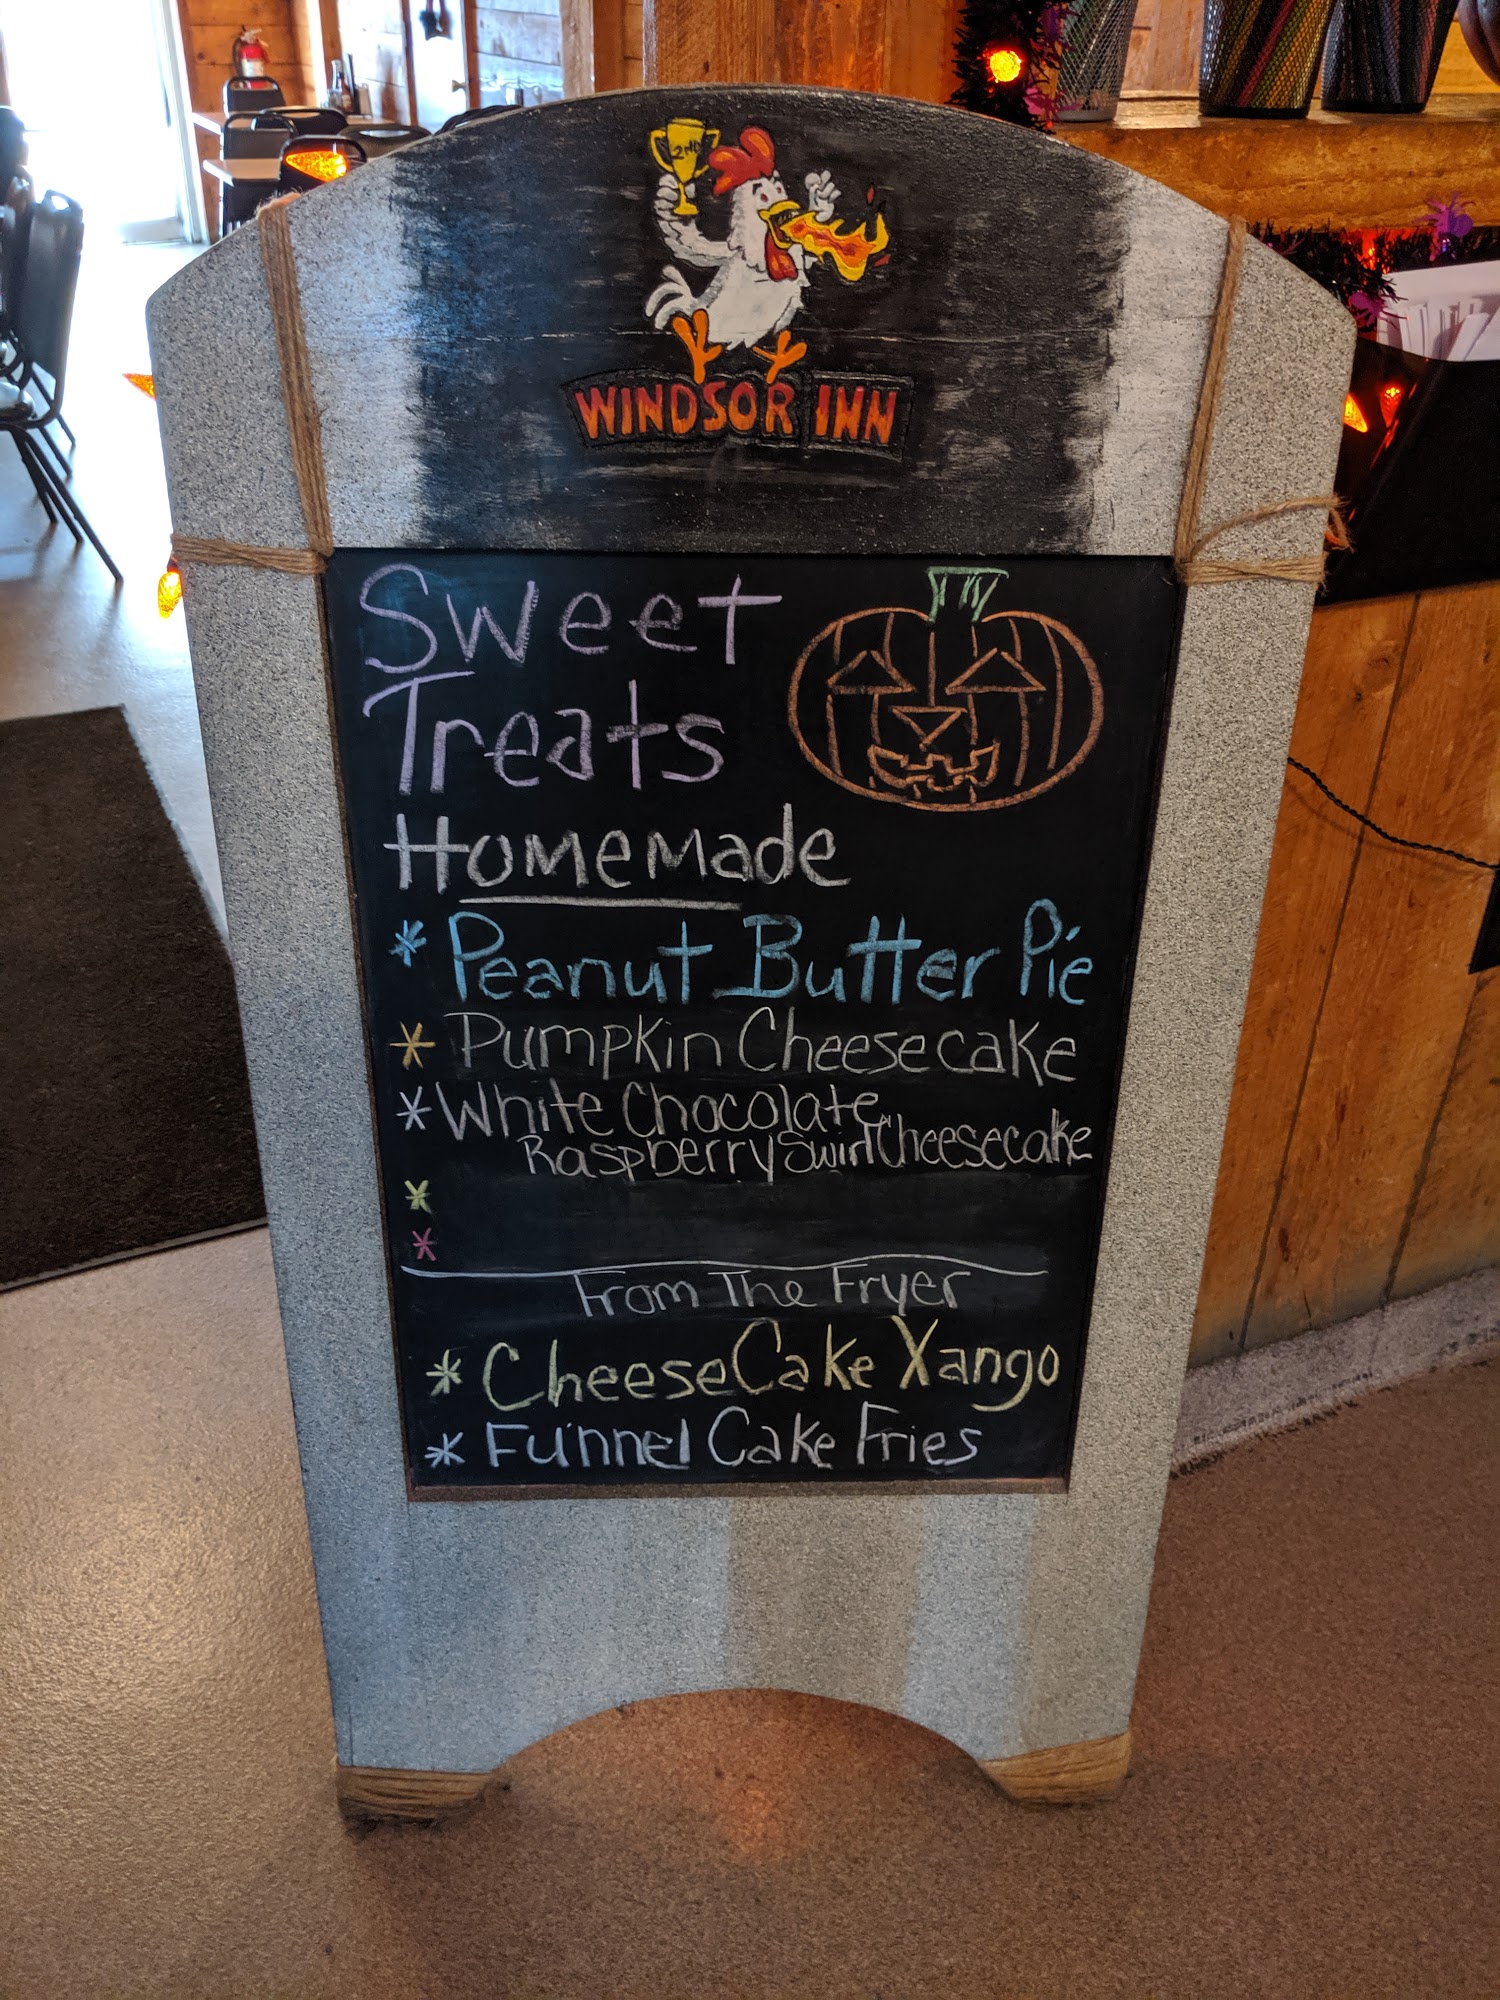 2ND
WINDSOR INN
Sweet
Treats
Homemade
* Peanut Butter Pie
* Pumpkin Cheesecake
* White Chocolate
Raspberry Swirl Cheesecake
*
*
From The Fryer
* CheeseCake Xango
* Funnel Cake Fries